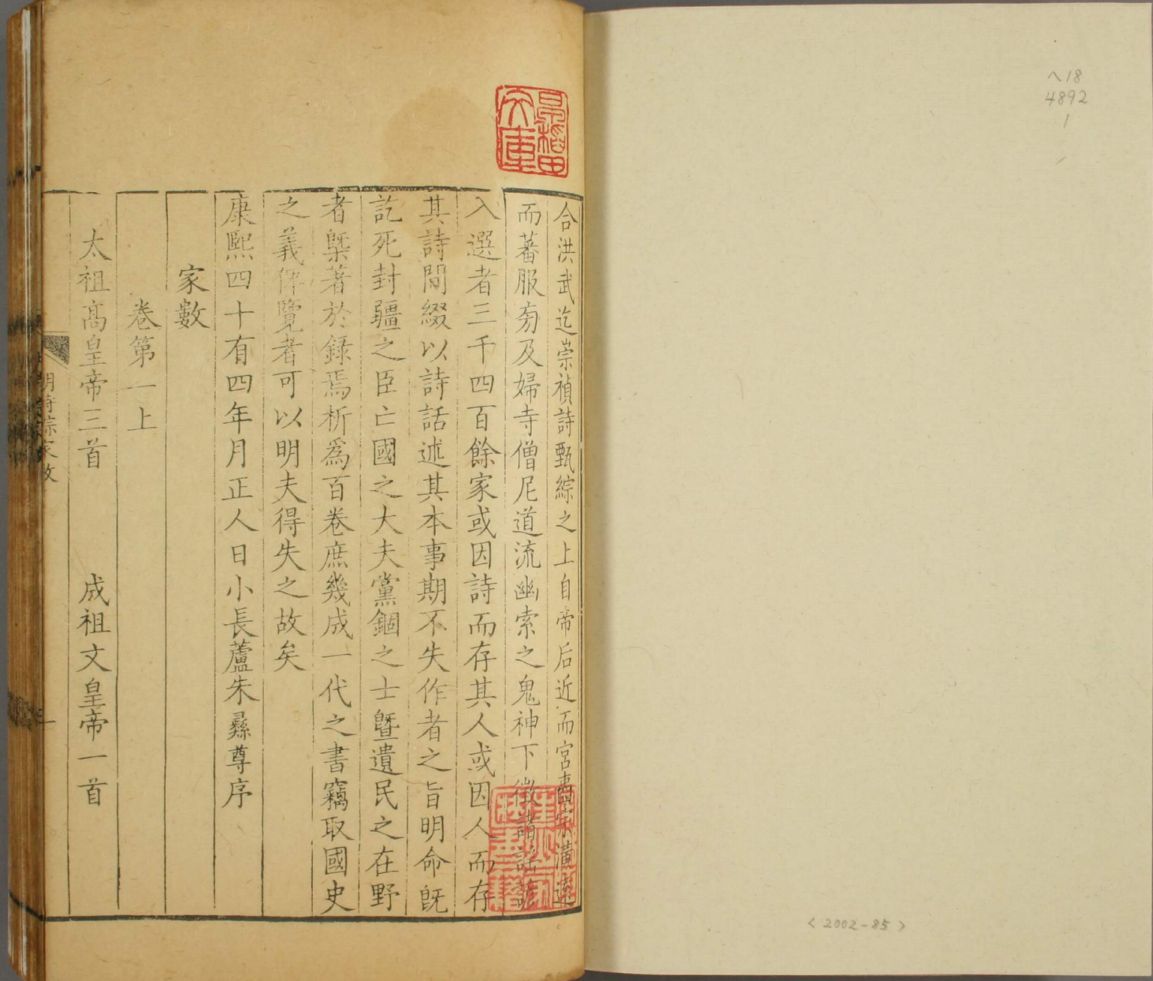 合洪武迄崇禎詩甄綜之上自帝后近而宮壼宗潢遠
而蕃服旁及婦寺僧尼道流幽索之鬼神下徵諸謠諺
入選者三千四百餘家或因詩而存其人或因人而存
其詩間綴以詩話述其本事期不失作者之旨明命既
訖死封疆之臣亡國之大夫黨錮之士曁遺民之在野
者槩著於錄焉析爲百卷庶幾成一代之書竊取國史
之義俾覽者可以明夫得失之故矣
康熙四十有四年月正人日小長蘆朱彝尊序
家數
卷第一上
太祖高皇帝三首 成祖文皇帝一首
明詩綜家數 一
早稻田文庫
ヘ18
4892
1
<2002-85>